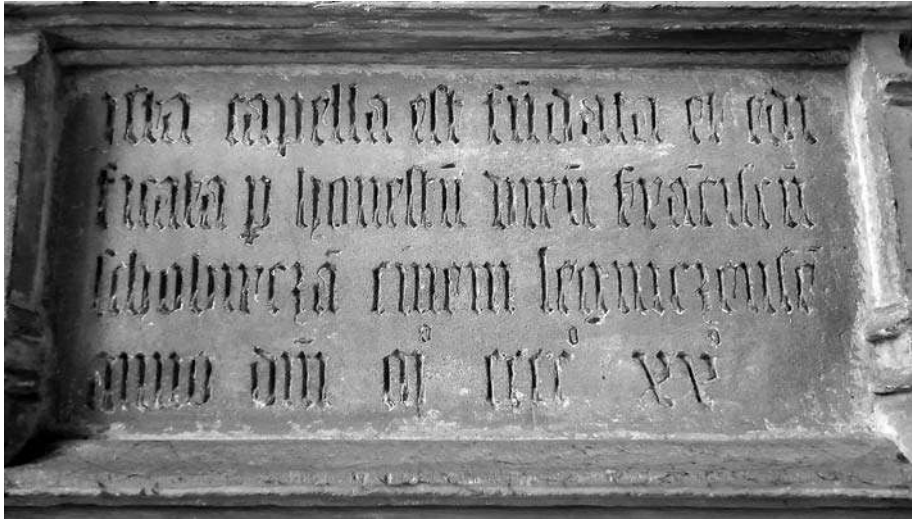 ista capella est fūdata et edi
ficata p honestū virū frāciscū
schobirczā civem legniczensē
anno dm̄ mº ccccº xxº